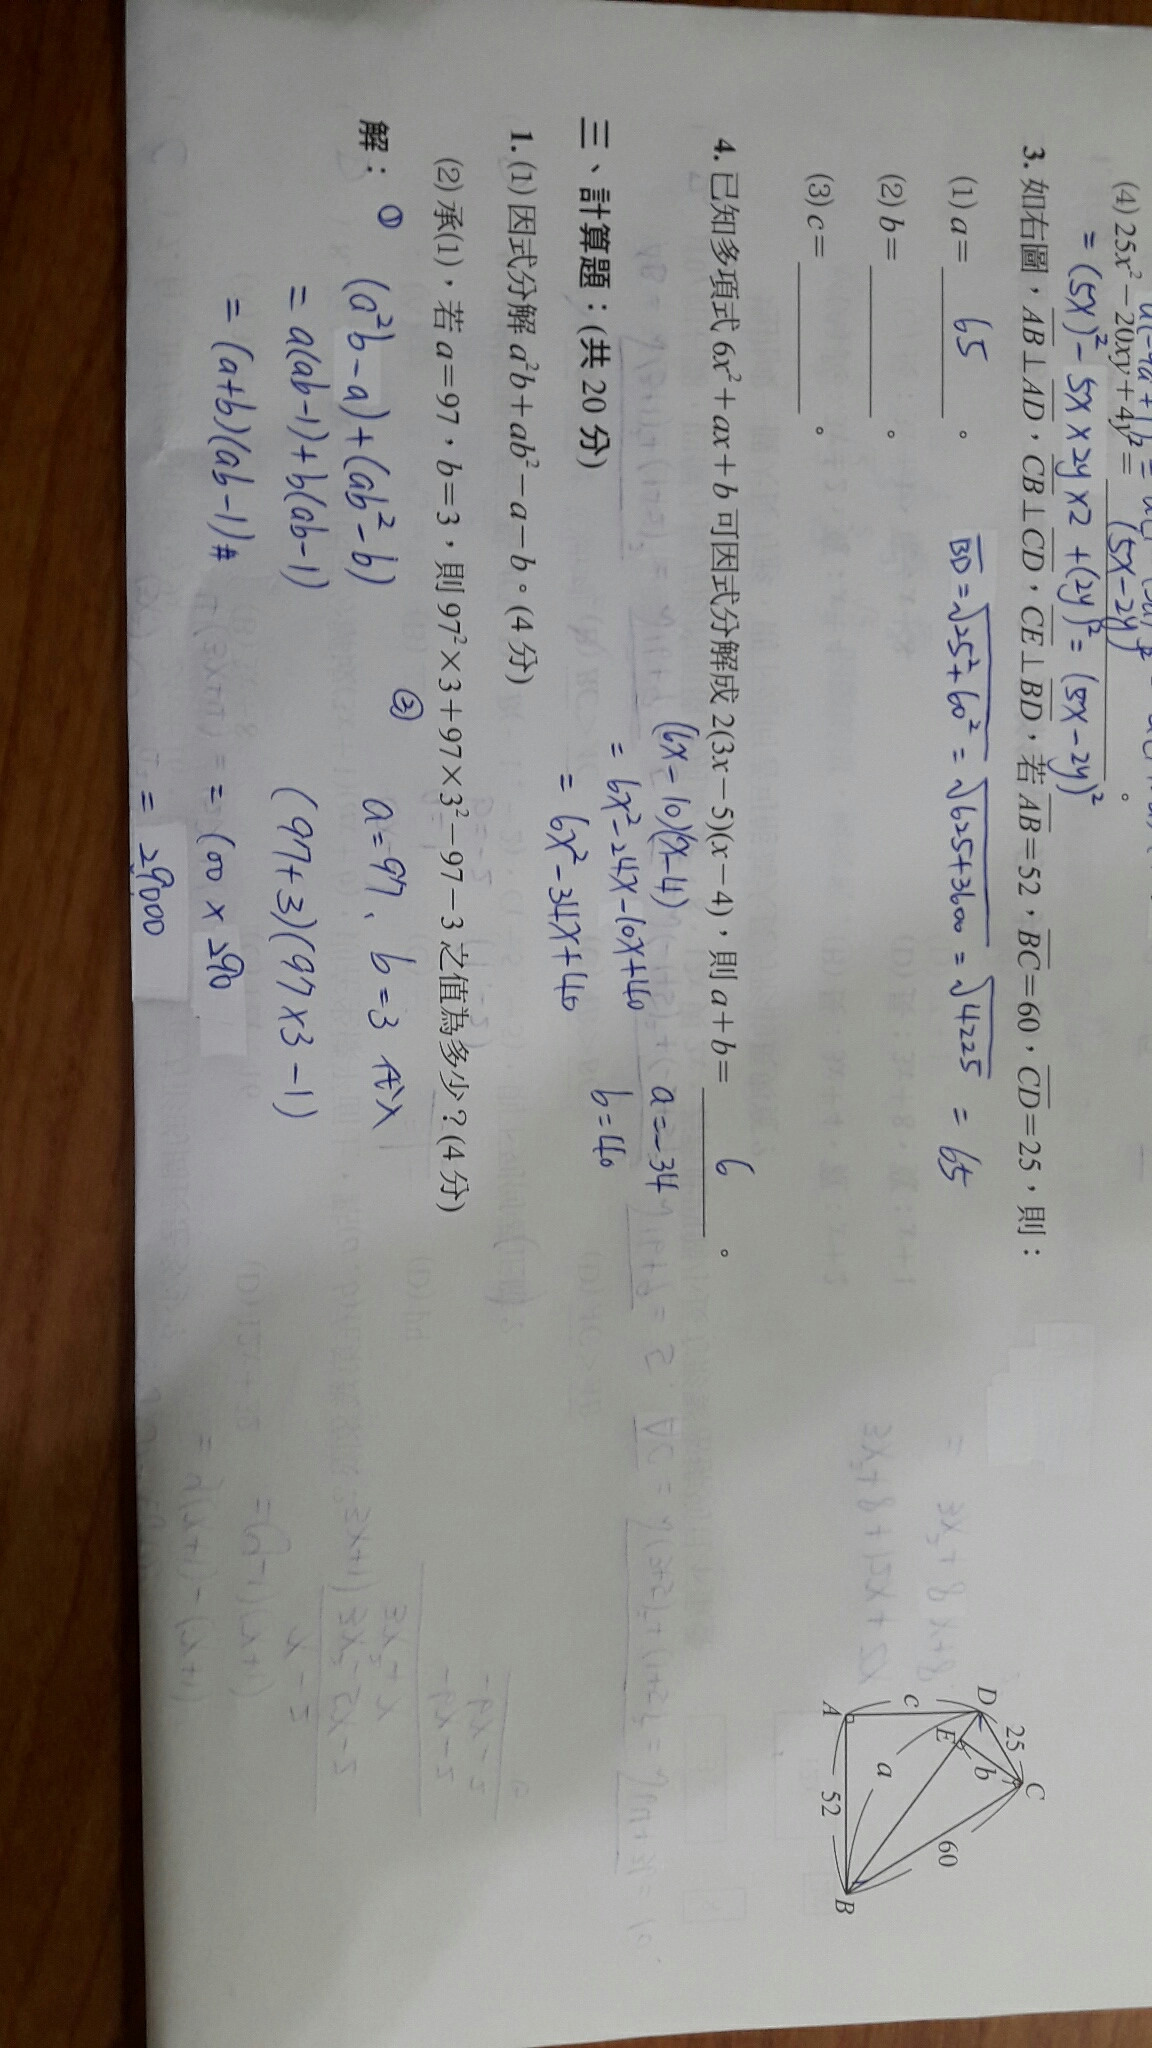 (4) 25x²－20xy＋4y²＝ (5x-2y)²。
= (5x)² - 5x × 2y × 2 + (2y)² = (5x-2y)²
3. 如右圖，AB⊥AD，CB⊥CD，CE⊥BD，若 AB＝52，BC＝60，CD＝25，則：
(1) a＝ 65 。
BD = √25²+60² = √625+3600 = √4225 = 65
(2) b＝ 。
(3) c＝ 。
D
25
C
c
E
b
a
60
A
52
B
4. 已知多項式 6x²＋ax＋b 可因式分解成 2(3x－5)(x－4)，則 a＋b＝ 6 。
(6x-10)(x-4)
a=-34
= 6x²-24x-10x+40
b=40
= 6x²-34x+40
三、計算題：(共 20 分)
1. (1) 因式分解 a²b＋ab²－a－b。(4 分)
(2) 承(1)，若 a＝97，b＝3，則 97²×3＋97×3²－97－3 之值為多少？(4 分)
解：①
(a²b-a)+(ab²-b)
= a(ab-1)+b(ab-1)
= (a+b)(ab-1)#
②
a=97、b=3 代入
(97+3)(97×3-1)
= 100 × 290
= 29000